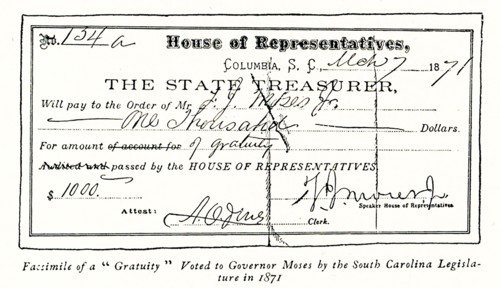 No. 134a House of Representatives,
COLUMBIA, S. C. Mch 7 1871
THE STATE TREASURER,
Will pay to the Order of Mr F. J. Moses Jr.
One Thousand Dollars.
For amount of account for of gratuity
Audited and passed by the HOUSE OF REPRESENTATIVES
$ 1000.
F. J. Moses Jr.
Speaker House of Representatives.
Attest: A. O. Jones
Clerk.
Facsimile of a "Gratuity" Voted to Governor Moses by the South Carolina Legisla-
ture in 1871